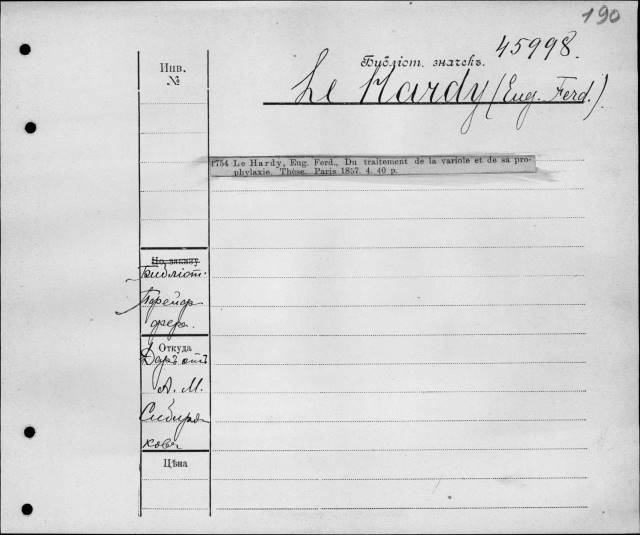 190
45998.
Библіот. значекъ.
Инв.
№
Le Hardy (Eug. Ferd.)
1754 Le Hardy, Eug. Ferd., Du traitement de la variole et de sa pro-
phylaxie. Thèse. Paris 1857. 4. 40 p.
По заказу
Библіот.
Прейер
фера.
Откуда
Даръ отъ
А. М.
Сибиря-
кова
Цѣна